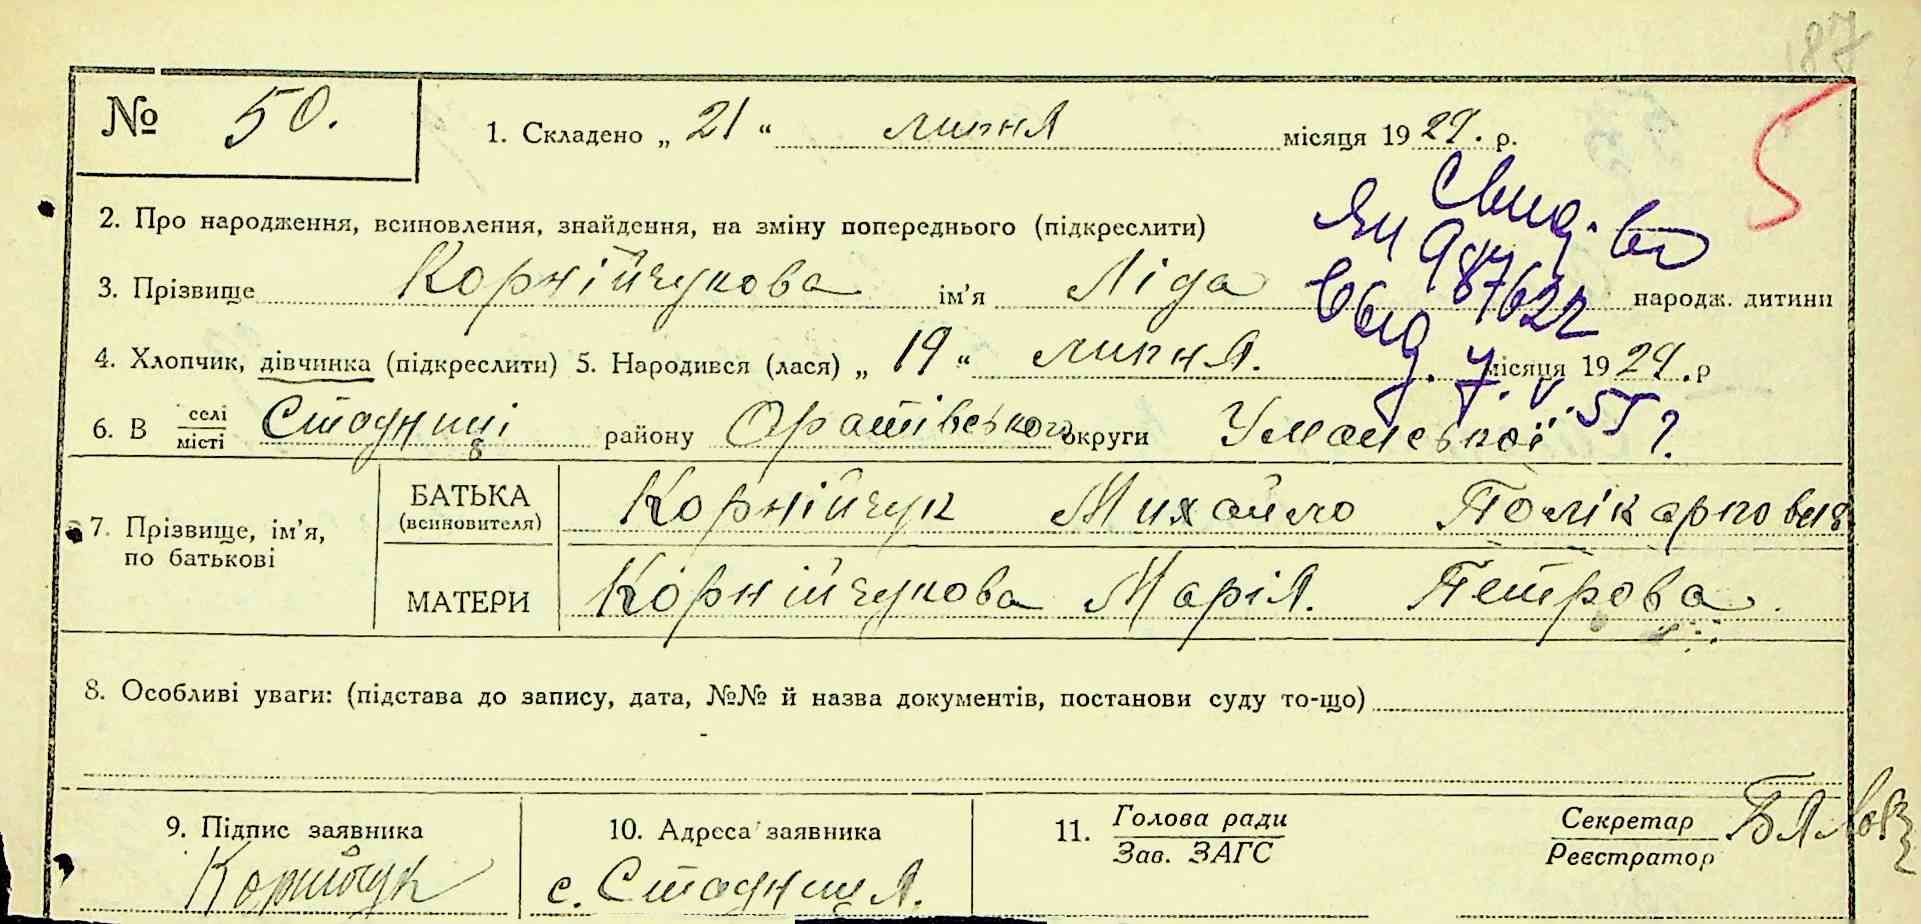 187
№ 50.
1. Складено „ 21 “ липня місяця 1929. р.
5
2. Про народження, всиновлення, знайдення, на зміну попереднього (підкреслити)
Свид-во
ЯЦ 987622
Выд. 7.V.55 г.
3. Прізвище Корнійчукова ім'я Ліда народж. дитини
4. Хлопчик, дівчинка (підкреслити) 5. Народився (лася) „ 19 “ липня. місяця 1929. р
6. В селі місті Стадниці району Оратівського округи Уманської
7. Прізвище, ім'я, по батькові
БАТЬКА (всиновителя) Корнійчук Михайло Полікарпович
МАТЕРИ Корнійчукова Марія. Петрова.
8. Особливі уваги: (підстава до запису, дата, №№ й назва документів, постанови суду то-що)
9. Підпис заявника
Корнійчук
10. Адреса заявника
с. Стадниця.
11. Голова ради
Зав. ЗАГС
Секретар
Реєстратор